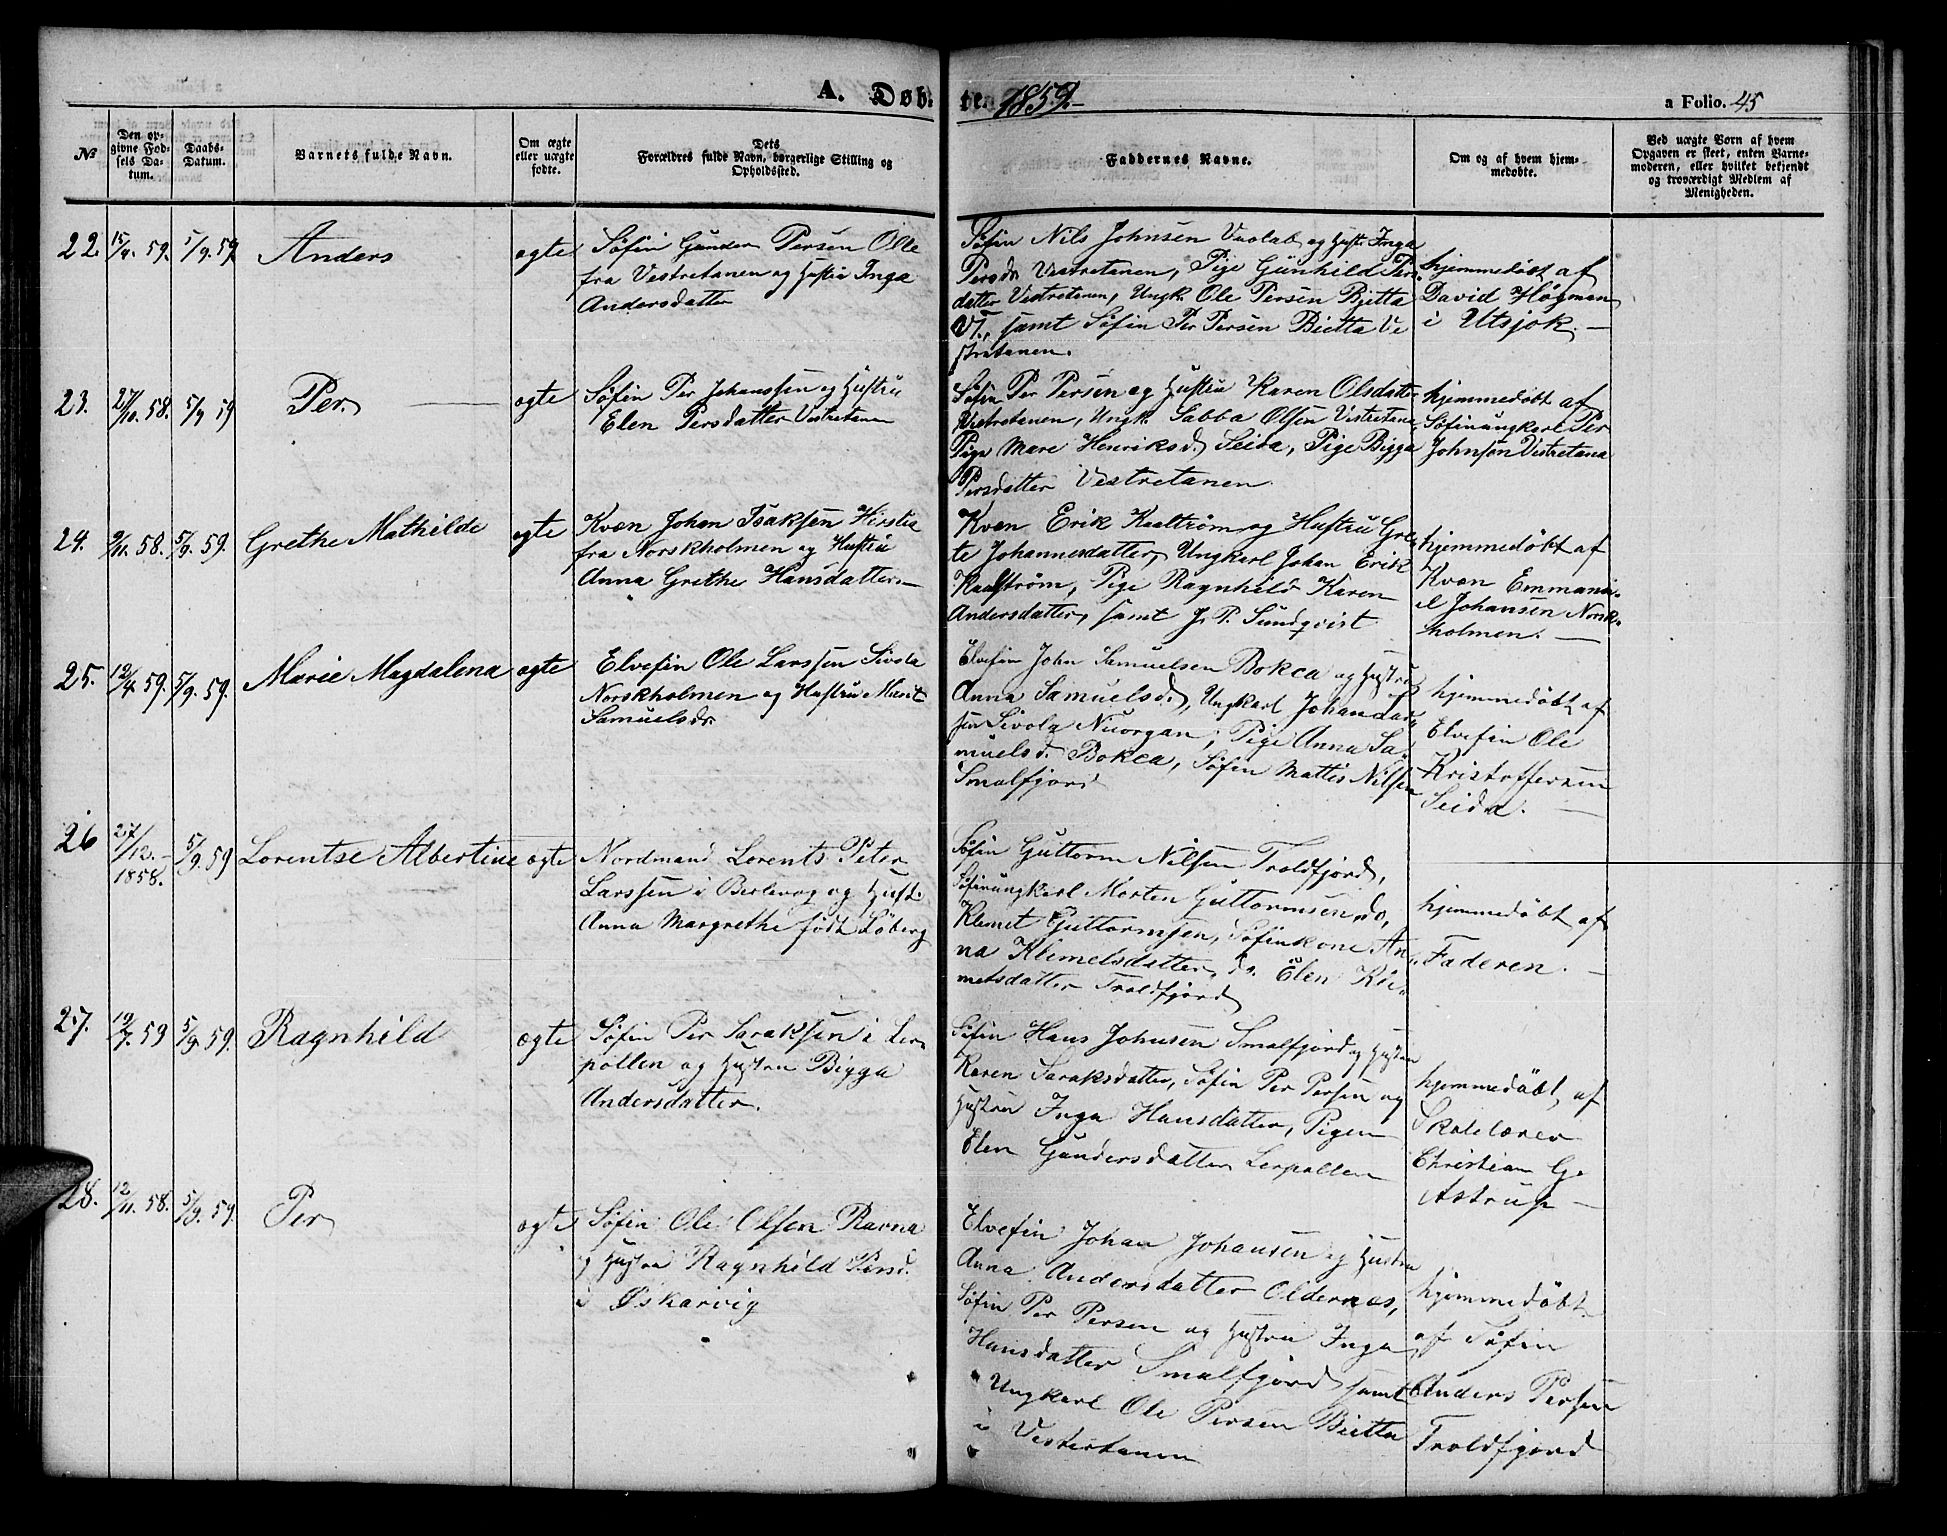 A. Døb-
ten 1859.-
a Folio. 45
№
Den op-
givne Fød-
sels Da-
tum.
Daabs-
Datum.
Barnets fulde Navn.
Om ægte
eller uægte
fødte.
Dets
Forældres fulde Navn, borgerlige Stilling og
Opholdssted.
Faddernes Navne.
Om og af hvem hjem-
medøbte.
Ved uægte Børn af hvem
Opgaven er skeet, enten Barne-
moderen, eller hvilket bekjendt
og troværdigt Medlem af
Menigheden.
22. 59. 5/9. 59. Anders ægte
Søfin Gunder Persen Olle
fra Vestretanen og Hustru Inga
Andersdatter
Søfin Nils Johnsen Vuolab og Hust. Inga
Persd. Vestretanen, Pige Gunhild Pers-
datter Vestretanen, Ungk. Ole Persen Bjetta
VT., samt Søfin Per Persen Bietta Ve
stretanen.
hjemmedøbt af
David Högman
i Utsjok. -
23. 27/10. 58. 5/9 59 Per. ægte
Søfin Per Johanssen og Hustru
Elen Persdatter Vestretanen
Søfin Per Persen og Hustru Karen Olsdatter
Vestretanen, Ungk. Sabba Olsen Vestretanen
Pige Mare Henriksd. Seida, Pige Bigga
Persdatter Vestretanen
hjemmedøbt af
Søfinungkarl Per
Johnsen Vestretana
24. 9/11. 58. 5/9. 59. Grethe Mathilde ægte
Kvæn Johan Isaksen Hirsta
fra Norskholmen og Hustru
Anna Grethe Hansdatter.-
Kvæn Erik Kaaltröm og Hustru Gre-
te Johannesdatter, Ungkarl Johan Erik
Kaalström, Pige Ragnhild Karen
Andersdatter, samt J. P. Sundqvist
hjemmedøbt af
Kvæn Emmanu-
el Johansen Norsk-
holmen. -
25. 12/4. 59. 5/9. 59. Marie Magdalena ægte
Elvefin Ole Larssen Sivola
Norskholmen og Hustru Marit
Samuelsdr.
Elvefin John Samuelsen Bokca og Hustru
Anna Samuelsd., Ungkarl Johan Lars-
sen Sivola Nuorgan, Pige Anna Sa-
muelsd. Bokca, Søfin Mattis Nilsen
Smalfjord
hjemmedøbt af
Elvefin Ole
Kristoffersen
Seida. -
26 27/12. 1858. 5/9. 59 Lorentse Albertine ægte
Nordmand Lorents Peter
Larssen i Berlevog og Hust.
Anna Margrethe født Løberg
Søfin Guttorm Nilsen Troldfjord,
Søfinungkarl Morten Guttormsen do,
Klemet Guttormsen, Søfinkone An-
na Klemetsdatter, do. Elen Kle-
metsdatter Troldfjord
hjemmedøbt af
Faderen. -
27. 19/7. 59 5/9. 59. Ragnhild ægte
Søfin Per Saraksen i Ler-
pollen og Hustru Bigga
Andersdatter.
Søfin Hans Johnsen Smalfjord og Hustru
Karen Saraksdatter, Søfin Per Persen og
Hustru Inga Hansdatter, Pigen
Elen Gundersdatter Lerpollen
hjemmedøbt af
Skolelærer
Christian G.
Astrup -
28. 12/11. 58. 5/9. 59. Per ægte
Søfin Ole Olsen Ravna
og Hustru Ragnhild Persd.
i Øskarvig
Elvefin Johan Johansen og Hustru
Anna Andersdatter Oldernæs,
Søfin Per Persen og Hustru Inga
Hansdatter Smalfjord samt
Ungkarl Ole Persen Bietta
i Vestertanen
hjemmedøbt
af Søfin
Anders Persen
Troldfjord